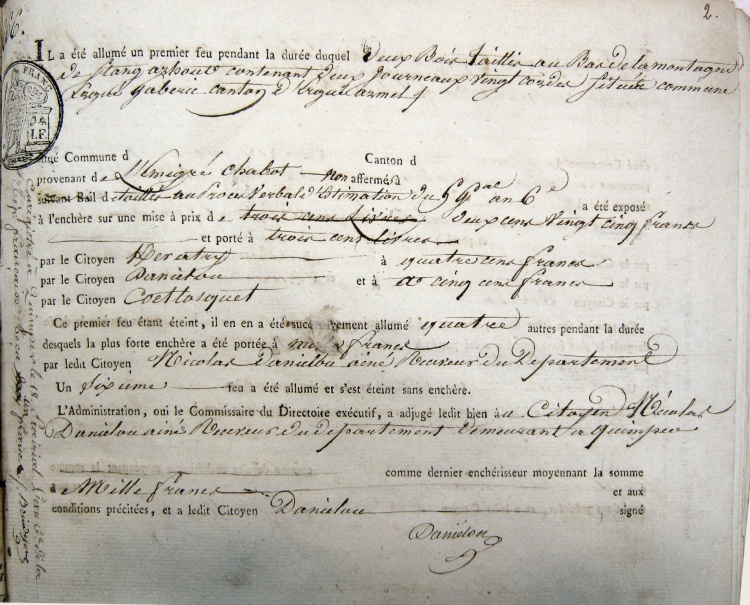 2.
IL a été allumé un premier feu pendant la durée duquel deux Bois taillis au Bas de la montagne
de Stang azhout contenant deux journeaux vingt cordes située commune
Ergué gaberic canton d'Ergué armel
Commune d Canton d
provenant de l'Emigré Chabot non affermé à
suivant Bail détaillés au Procu Verbal d'Estimation du 5 an 6e a été exposé
à l'enchère sur une mise à prix de trois cens Livres deux cens vingt cinq francs
et porté à trois cens livres
par le Citoyen Keratry à quatre cens francs
par le Citoyen Daniélou et à cinq cens francs
par le Citoyen Coetlosquet
Ce premier feu étant éteint, il en en a été succ ivement allumé quatre autres pendant la durée
desquels la plus forte enchère a été portée à mille francs
par ledit Citoyen Nicolas Daniélou ainé Receveur du Département
Un sixieme feu a été allumé et s'est éteint sans enchère.
L'Administration, oui le Commissaire du Directoire exécutif, a adjugé ledit bien à u Citoyen Nicolas
Daniélou ainé Receveur du département demeurant a quimper
comme dernier enchérisseur moyennant la somme
à Mille francs et aux
conditions précitées, et a ledit Citoyen Daniélou signé
Daniélou
Enregistré à Quimper le 18